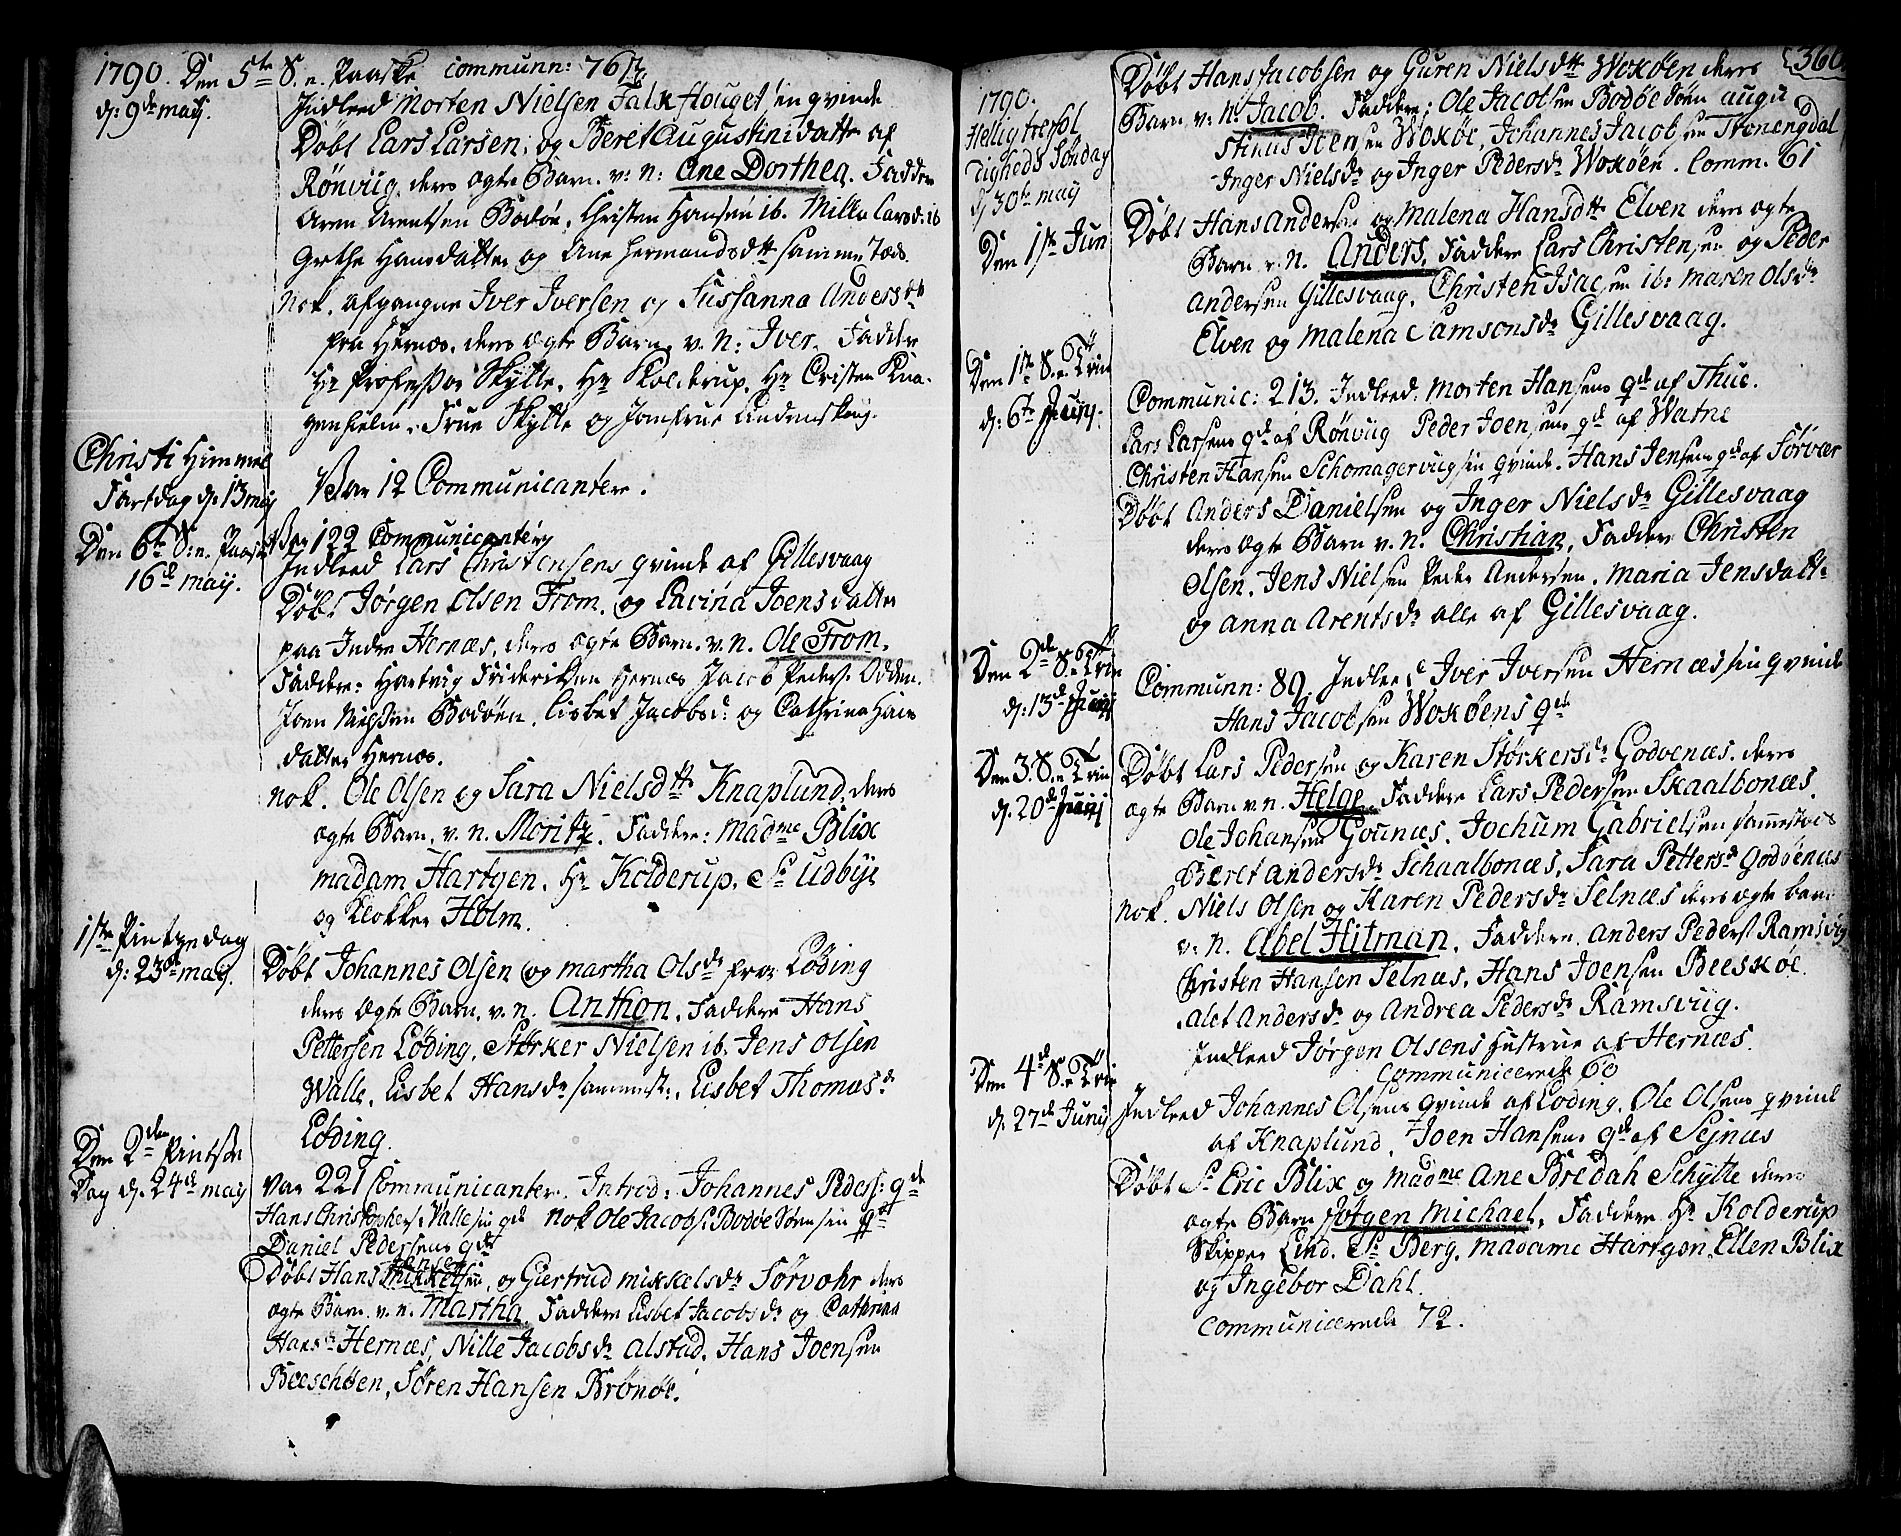 1790. Den 5te S. n. Paaske communn: 76
d: 9de maij.
Indleed Morten Nielsen Falk Houget en qvinde
Døbt Lars Larsen, og Beret Augustinidatter af
Rønviig, deres ægte Barn. v: n: Ane Dorthea. Faddere
Aren Arentsen Bodøe, Christen Hansen ib. Mille Larsd: ib
Grethe Hansdatter og Ane Hermandsdtt samme stæds.
Nok. afgangne Iver Iversen og Sussanna Andersdtt
fra Hernæs. deres ægte Barn. v. N: Iver. Faddere
Hr Professor Skytte. Hr Kolderup. Hr Cristen Kna-
genhielm. Frue Skytte og Jomfrue
Christi Himmel
Fartsdag d: 13 maij
Var 12 Communicantere.
Den 6te S: n. Paaske
16de maij.
Var 122 Communicantere
Indleed Lars Christensens qvinde af Gillesvaag
Døbt Jørgen Olsen From. og Lavina Joensdatter
paa Indre Hernæs, deres ægte Barn. v. N. Ole From.
Faddere: Hartvig Frideriksen Hernæs Jacob Peders. Odden.
Joen Bodøen, Lisbet Jacobsd: og Cathrina Hans
datter Hernæs.
Nok. Ole Olsen og Sara Nielsdtt Knaplund, deres
ægte Barn. v. n. Moritz. Faddere: Madme Blix
Madam Hartgen. Hr Kolderup. Sr Udbye
og Klokker Holm.
1ste Pintzedag
d: 23de maij.
Døbt Johannes Olsen og Martha Olsdr fra Løding
deres ægte Barn. v. n. Anthon. Faddere Hans
Pettersen Løding, Størker Nielsen ib. Jens Olsen
Walle. Lisbet Hansdr sammest:. Lisbet Thomasd
Løding.
Den 2den Pintse
Dag d: 24de maij
Var 221 Communicantere. Introd: Johannes Peders: qde
Hans Christophers: Valle sin qde Nok Ole Jacobs: Bodøe Søen sin qde
Daniel Pedersens qde
Døbt Hans Hansen Mikkelsen, og Giertrud Mikkelsdr Sørvohr deres
ægte Barn. v. n. Martha. Faddere Lisbet Jacobsdr og Cathrina
Hansdr Hernæs, Nille Jacobsdr Alstad, Hans Joensen
Beeschøen, Søren Hansen Brønøe.
360
1790.
Hellig Trefol
digheds Søndag
d: 30te maij
Døbt Hans Jacobsen og Guren Nielsdtt Woxøen deres
Barn. v: n. Jacob. Faddere: Ole Jacobsen Bodøe Søen Augu
stinus Joensen Woxøe, Johannes Jacobsen Stenengdal
Inger Nielsdr og Inger Pedersdr Woxøen. Comm. 61
Den 1ste Jun
Døbt Hans Andersen og Malena Hansdtt Elven deres ægte
Barn v. n. Anders. Faddere Lars Christensen og Peder
Andersen Gillesvaag. Christen Isacsen ib: Maren Olsdr
Elven og Malena Samsonsdr Gillesvaag.
Den 1ste S. e. Trin
d: 6te Junij.
Communic: 213. Indleed. Morten Hansens qde af Thue.
Lars Larsens qde af Rønviig Peder Joensens qde af Watne
Christen Hansen Schomagerviig sin qvinde. Hans Jensens qde af Sørvær
Døbt Anders Danielsen og Inger Nielsdr Gillesvaag
deres ægte Barn v. n. Christian. Faddere Christen
Olsen. Jens Nielsen Peder Andersen. Maria Jensdatt:
og Anna Arentsdr alle af Gillesvaag.
Den 2de S. e. Trin
d: 13de Junij
Communn: 80. Indleed Iver Iversen Hernæs sin qvinde
Hans Jacobsen Woxøens qde
Den 3. S. e. Trin
d: 20de Junij
Døbt Lars Pedersen og Karen Størkersdr Godøenæs. deres
ægte Barn v. n. Helge. Faddere Lars Pedersen Skaalbonæs.
Ole Johansen Godnæs. Jochum Gabrielsen sammesteds
Beret Andersdr Schaalbonæs. Sara Pettersdr Godøenæs
Nok. Niels Olsen og Karen Pedersdr Selnæs deres ægte barn
v. n. Abel Hitman. Faddere. Anders Peders Ramsviig
Christen Hansen Selnæs. Hans Joensen Beeskøe.
Alet Andersdr og Andrea Pedersdr Ramsviig.
Indleed Jørgen Olsens Hustrue af Hernæs.
Communicerede 60
Den 4de S. e. Trin
d: 27de Junij
Indleed Johannes Olsens qvinde af Løding. Ole Olsens qvinde
af Knaplund. Joen Hansens qde af Sejnæs
Døbt Sr Eric Blix og Madme Ane Bredah Schytte deres
ægte Barn Jørgen Michael. Faddere Hr Kolderup
Skipper Lind. Sr Berg. Madame Hartgen, Ellen Blix
og Ingebor Dahl.
Communicerede 72.